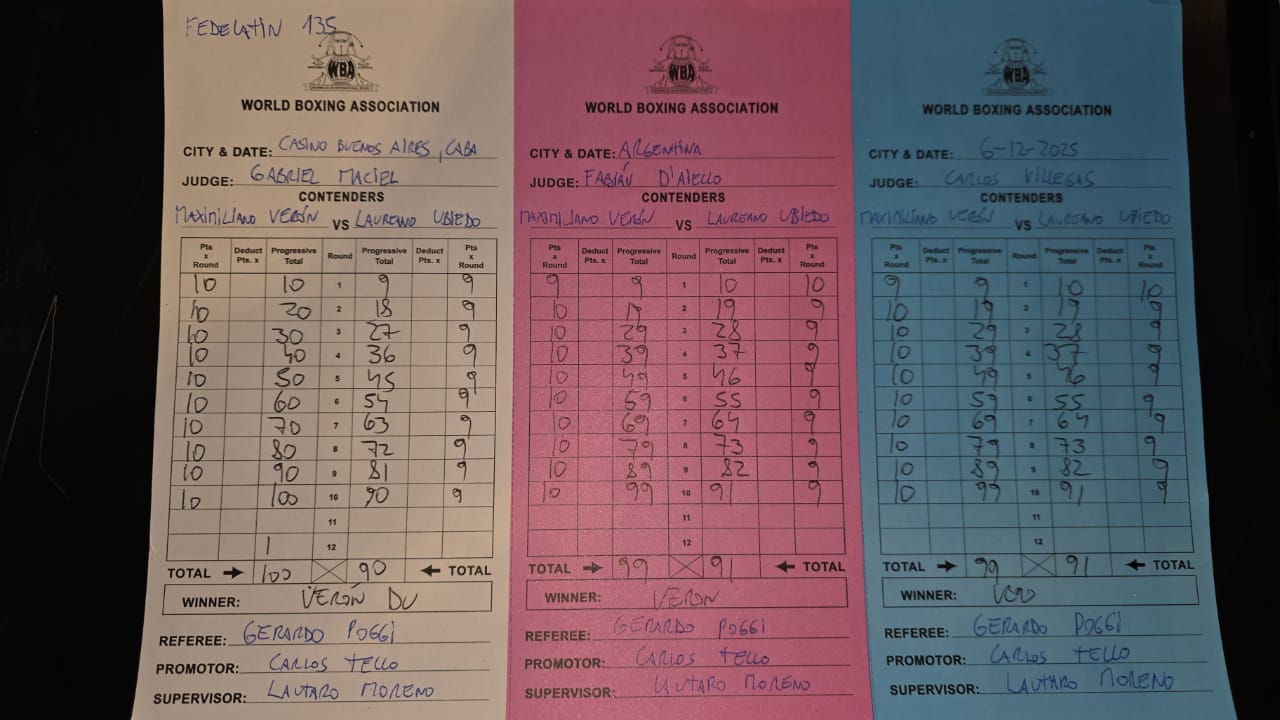 FEDELATIN 135
WBA
WORLD BOXING ASSOCIATION
CITY & DATE: CASINO BUENOS AIRES, CABA
JUDGE: GABRIEL MACIEL
CONTENDERS
MAXIMILIANO VERÓN VS LAUREANO UBIEDO
Pts x Round Deduct Pts. x Progressive Total Round Progressive Total Deduct Pts. x Pts x Round
10 10 1 9 9
10 20 2 18 9
10 30 3 27 9
10 40 4 36 9
10 50 5 45 9
10 60 6 54 9
10 70 7 63 9
10 80 8 72 9
10 90 9 81 9
10 100 10 90 9
11
1 12
TOTAL 100 90 TOTAL
WINNER: VERÓN DU
REFEREE: GERARDO POGGI
PROMOTOR: CARLOS TELLO
SUPERVISOR: LAUTARO MORENO
WBA
WORLD BOXING ASSOCIATION
CITY & DATE: ARGENTINA
JUDGE: FABIÁN D'AIELLO
CONTENDERS
MAXIMILIANO VERÓN VS LAUREANO UBIEDO
Pts x Round Deduct Pts. x Progressive Total Round Progressive Total Deduct Pts. x Pts x Round
9 9 1 10 10
10 19 2 19 9
10 29 3 28 9
10 39 4 37 9
10 49 5 46 9
10 59 6 55 9
10 69 7 64 9
10 79 8 73 9
10 89 9 82 9
10 99 10 91 9
11
12
TOTAL 99 91 TOTAL
WINNER: VERON
REFEREE: GERARDO POGGI
PROMOTOR: CARLOS TELLO
SUPERVISOR: LAUTARO MORENO
WBA
WORLD BOXING ASSOCIATION
CITY & DATE: 6-12-2025
JUDGE: CARLOS VILLEGAS
CONTENDERS
MAXIMILIANO VERÓN VS LAUREANO UBIEDO
Pts x Round Deduct Pts. x Progressive Total Round Progressive Total Deduct Pts. x Pts x Round
9 9 1 10 10
10 19 2 19 9
10 29 3 28 9
10 39 4 37 9
10 49 5 46 9
10 59 6 55 9
10 69 7 64 9
10 79 8 73 9
10 89 9 82 9
10 99 10 91 9
11
12
TOTAL 99 91 TOTAL
WINNER:
REFEREE: GERARDO POGGI
PROMOTOR: CARLOS TELLO
SUPERVISOR: LAUTARO MORENO